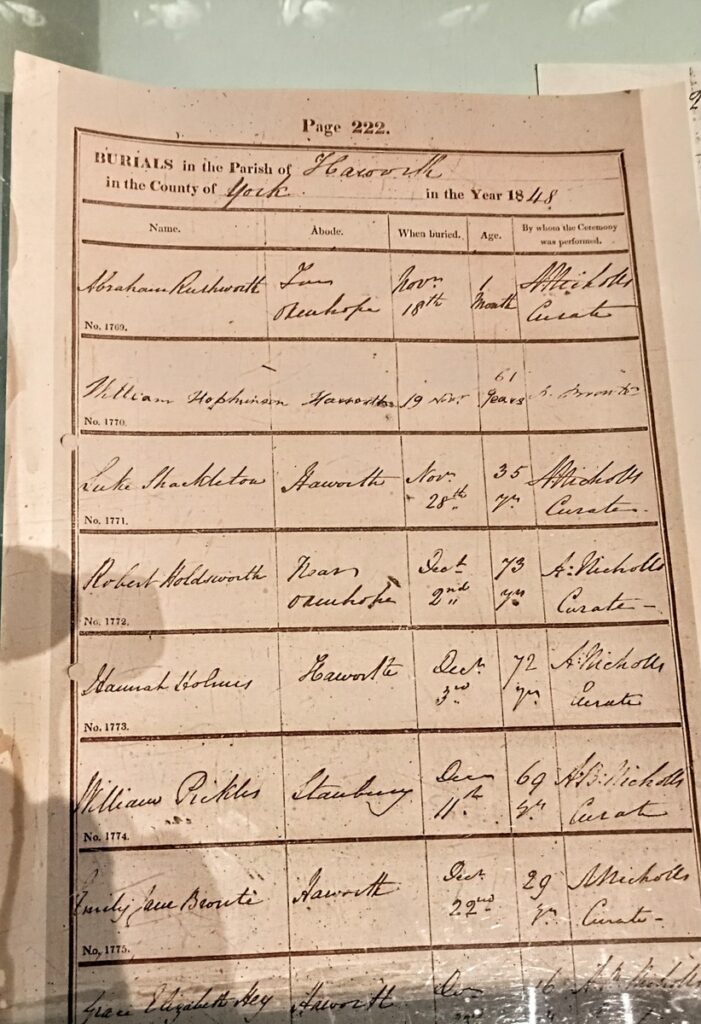 Page 222.
BURIALS in the Parish of Haworth
in the County of York in the Year 1848
Name. Abode. When buried. Age. By whom the Ceremony was performed.
Abraham Rushworth Far Oxenhope Novr 18th 1 Month A Nicholls Curate
No. 1769.
William Hopkinson Haworth 19 Novr 61 Years P. Bronte
No. 1770.
Luke Shackleton Haworth Novr 28th 35 yrs A Nicholls Curate
No. 1771.
Robert Holdsworth Near Oxenhope Decr 2nd 73 yrs A. Nicholls Curate
No. 1772.
Hannah Holmes Haworth Decr 3rd 72 yrs A. Nicholls Curate
No. 1773.
William Pickles Stanbury Decr 11th 69 yrs A. B. Nicholls Curate
No. 1774.
Emily Jane Brontë Haworth Decr 22nd 29 yrs A Nicholls Curate
No. 1775.
Grace Elizabeth Hey Haworth 16 A. B. Nicholls